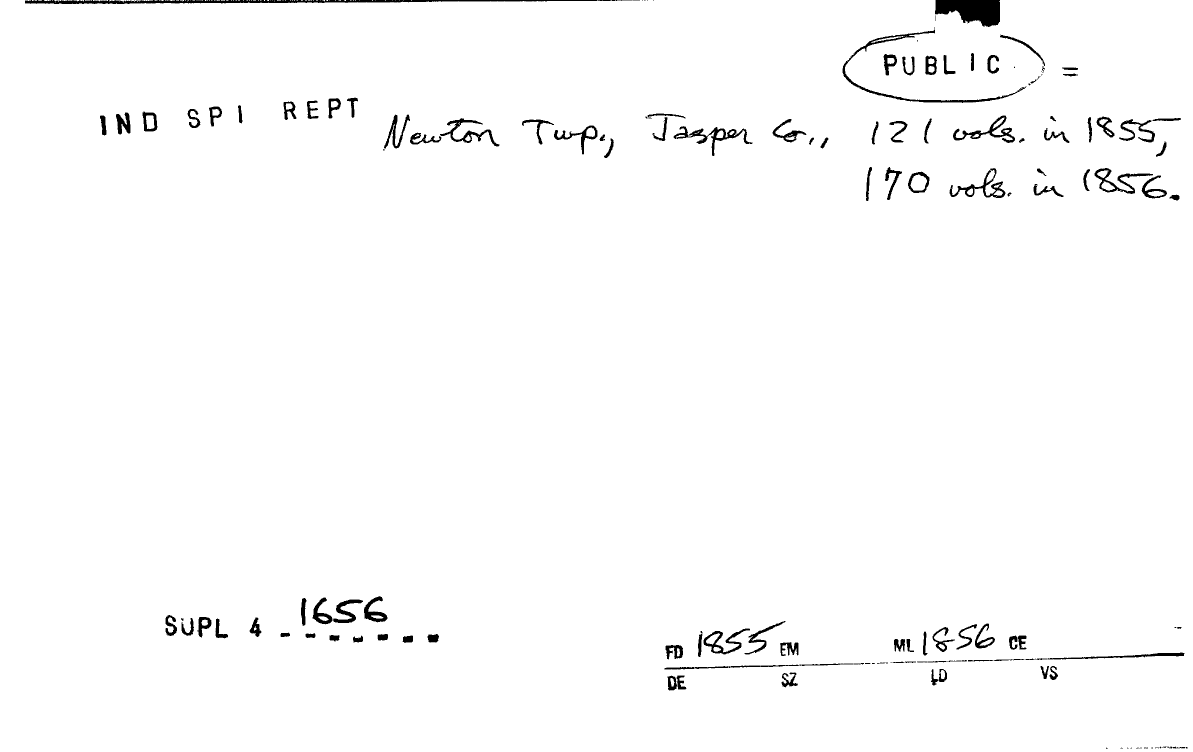 PUBLIC =
IND SPI REPT Newton Twp., Jasper Co., 121 vols. in 1855,
170 vols. in 1856.
SUPL 4 1656
FD 1855 EM ML 1856 CE
DE SZ LD VS